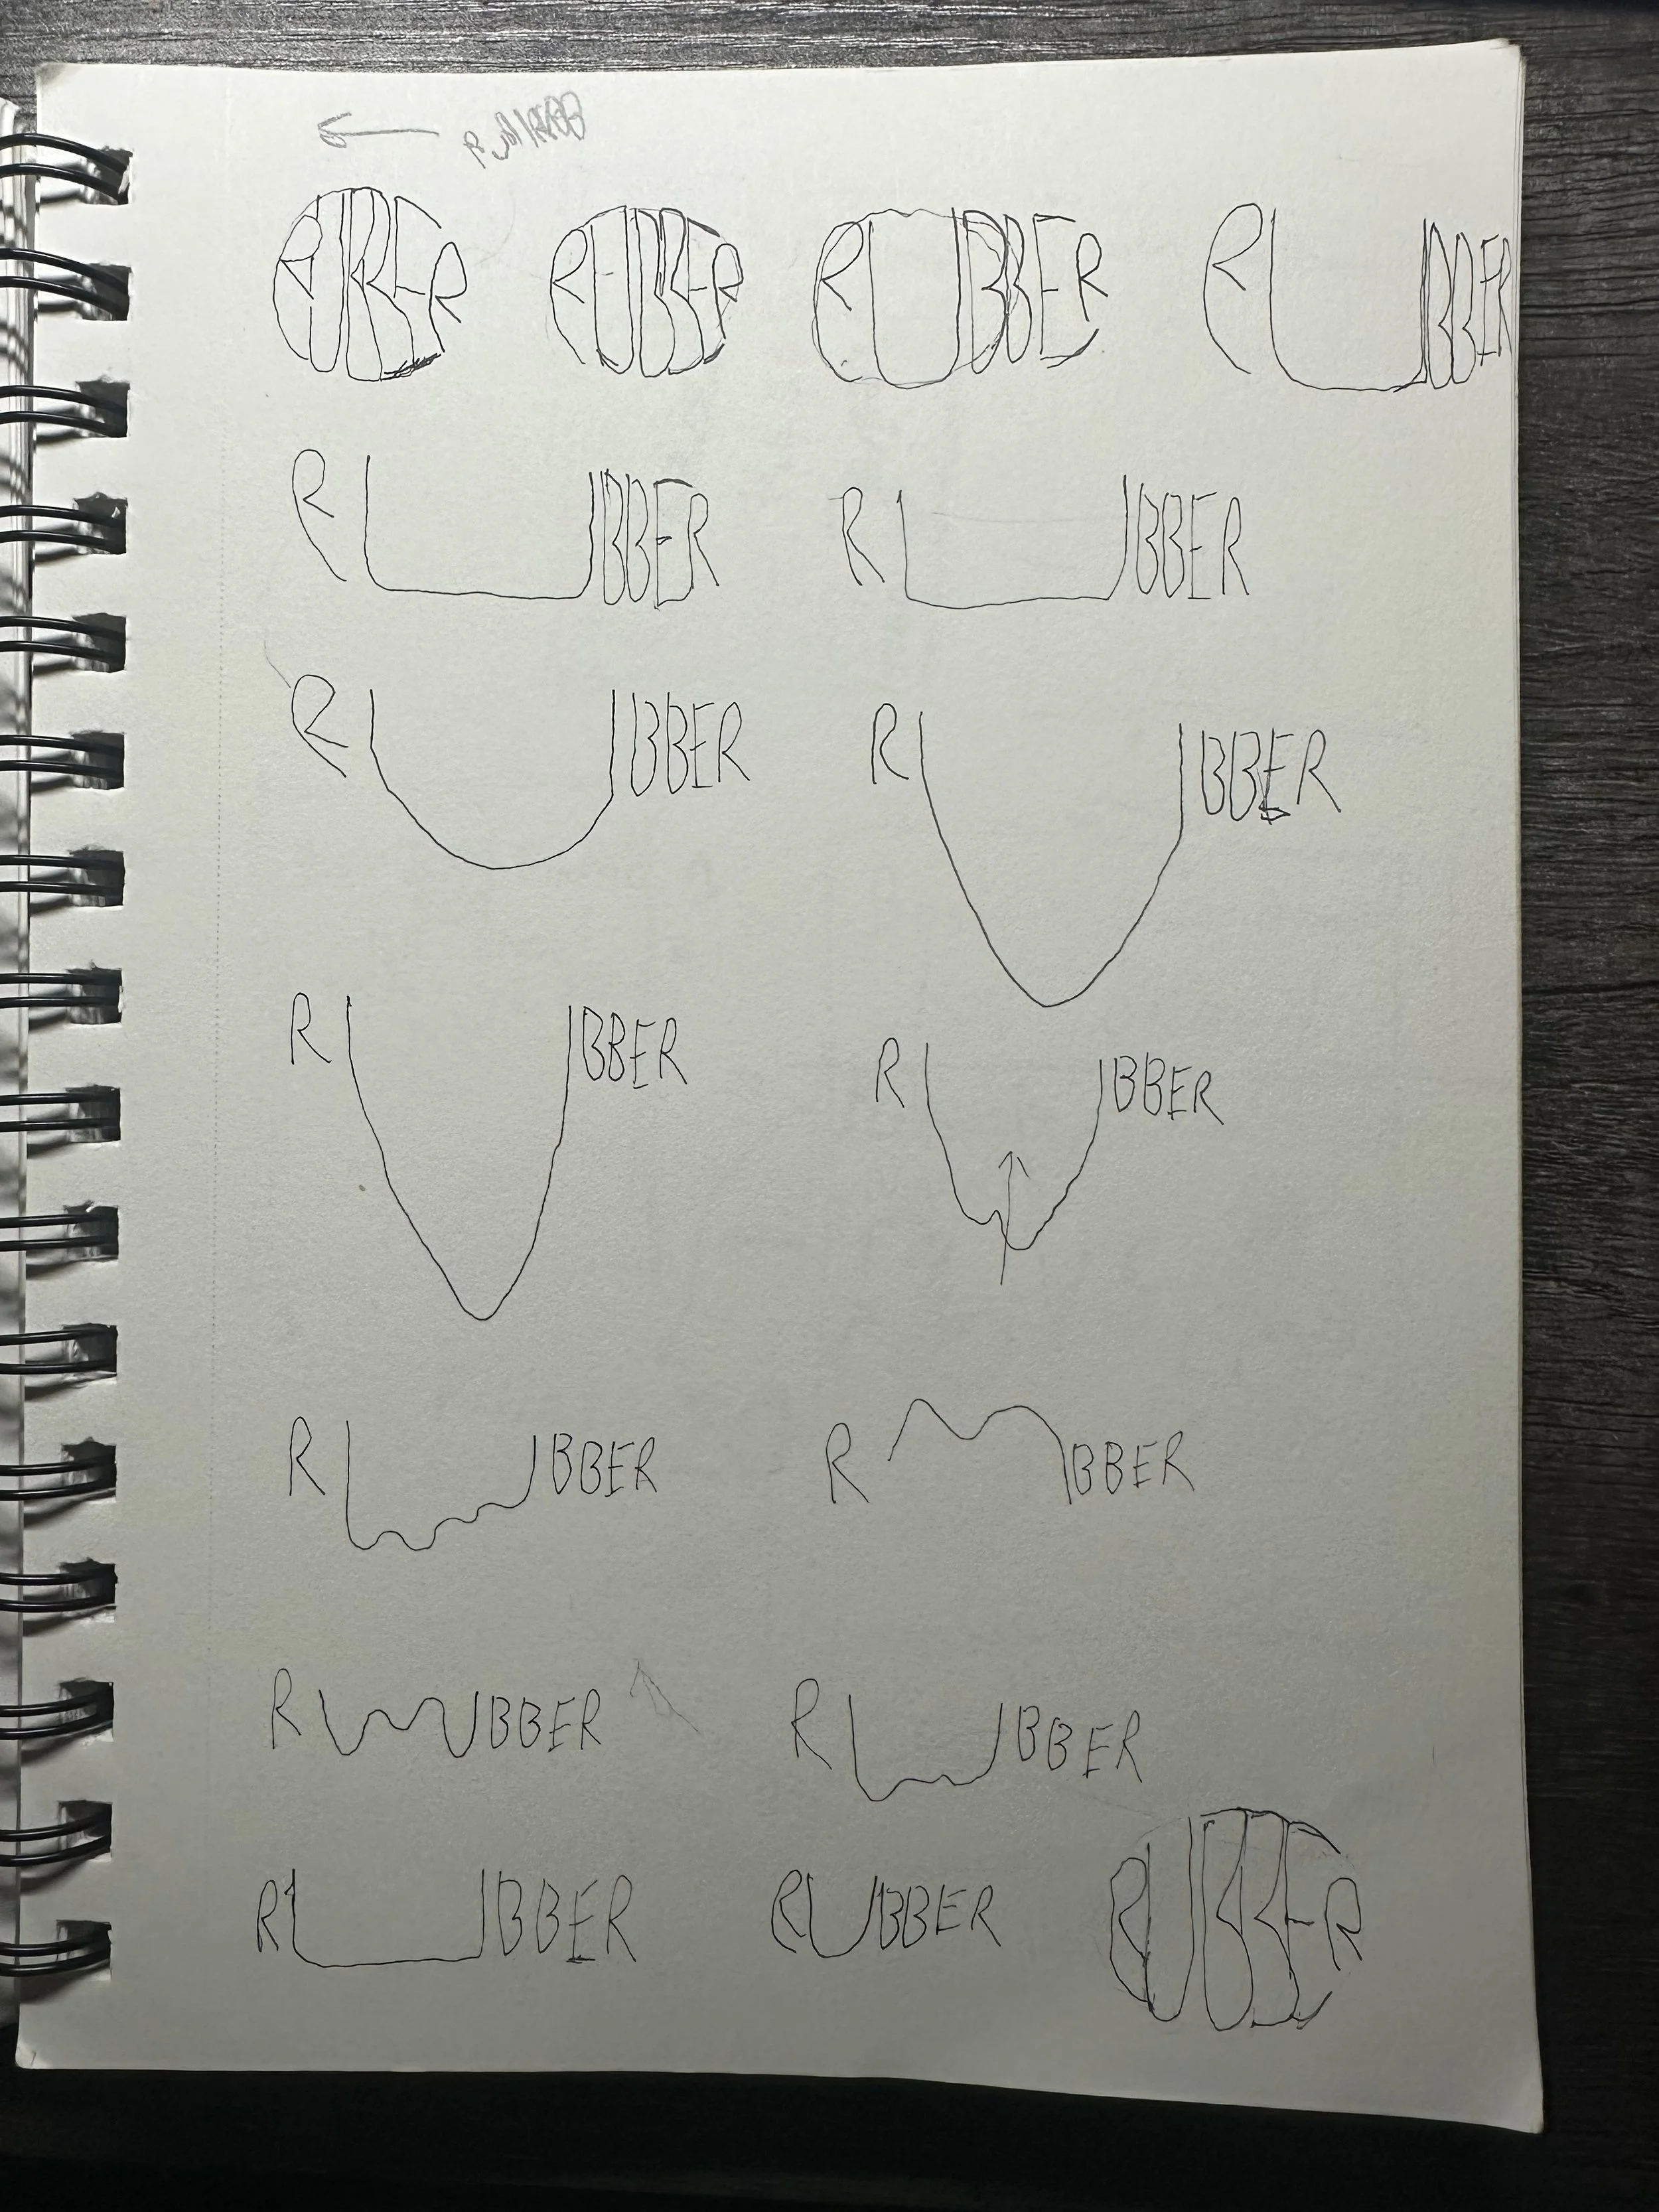 RUBBER RUBBER RUBBER RUBBER
RUBBER RUBBER
RUBBER RUBBER
RUBBER RUBBER
RUBBER RUBBER
RUBBER RUBBER
RUBBER RUBBER RUBBER